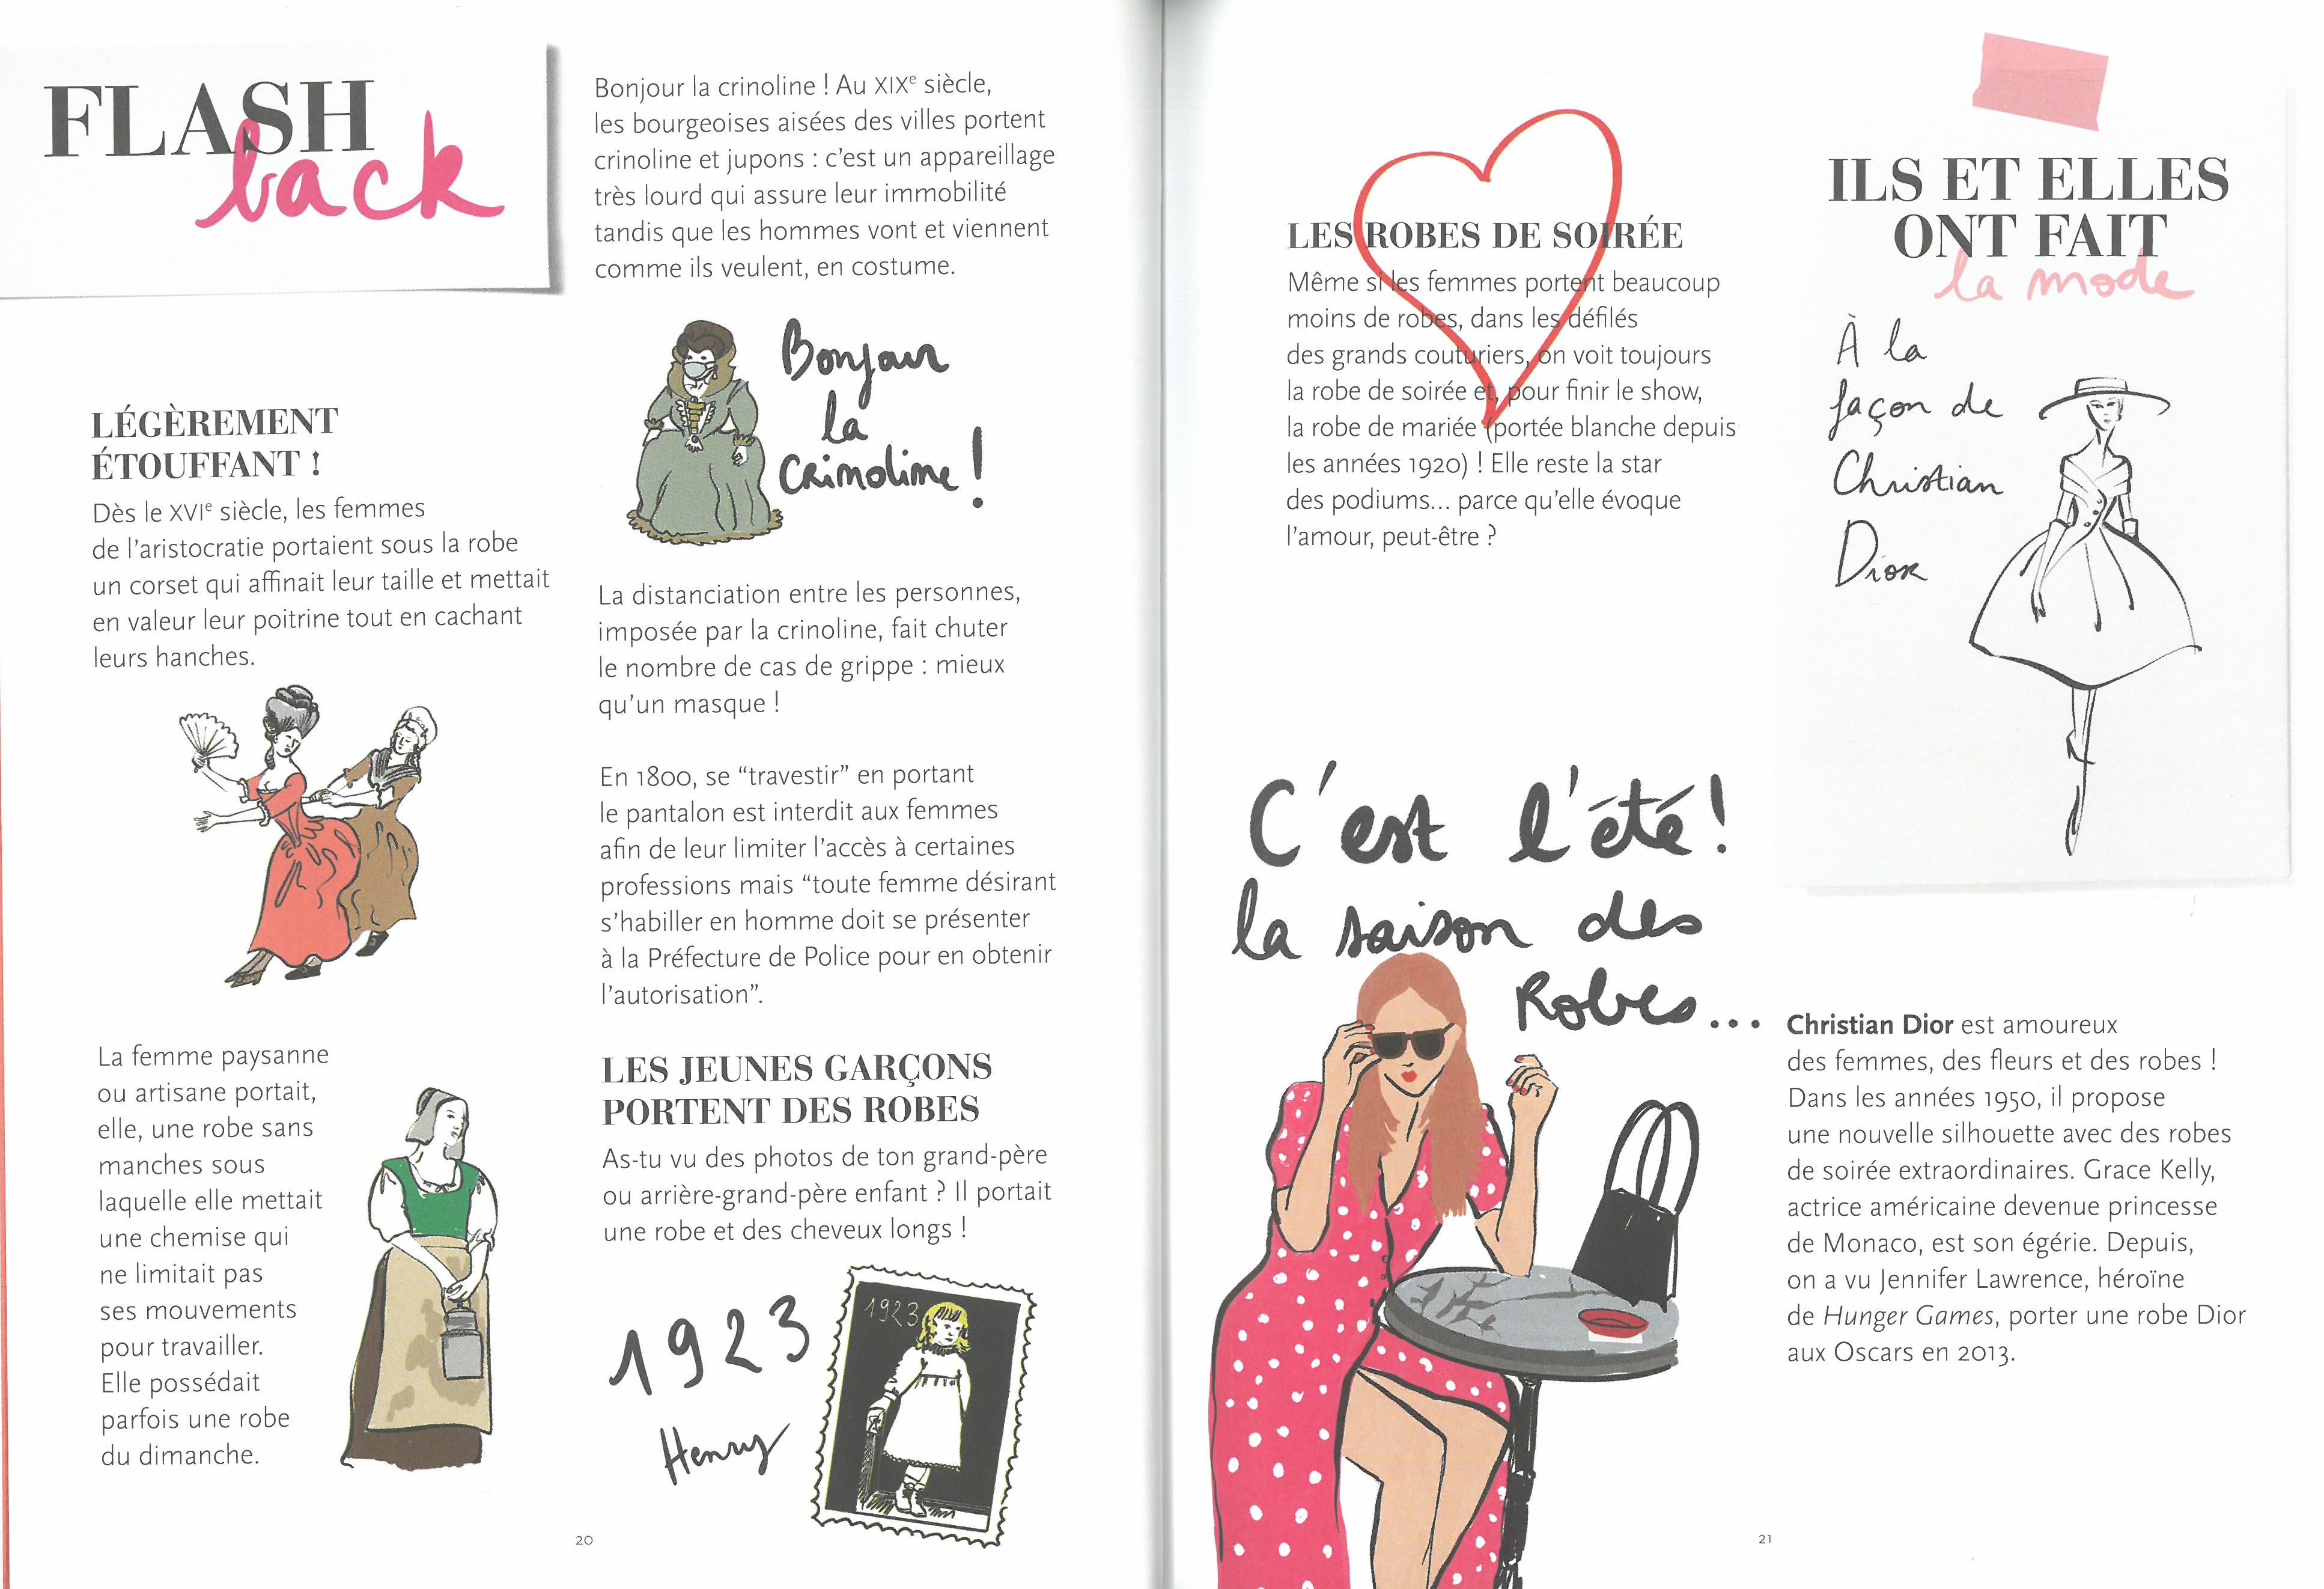 FLASH
back
LÉGÈREMENT
ÉTOUFFANT !
Dès le XVIe siècle, les femmes
de l'aristocratie portaient sous la robe
un corset qui affinait leur taille et mettait
en valeur leur poitrine tout en cachant
leurs hanches.
La femme paysanne
ou artisane portait,
elle, une robe sans
manches sous
laquelle elle mettait
une chemise qui
ne limitait pas
ses mouvements
pour travailler.
Elle possédait
parfois une robe
du dimanche.
Bonjour la crinoline ! Au XIXe siècle,
les bourgeoises aisées des villes portent
crinoline et jupons : c'est un appareillage
très lourd qui assure leur immobilité
tandis que les hommes vont et viennent
comme ils veulent, en costume.
Bonjour
la
crinoline !
La distanciation entre les personnes,
imposée par la crinoline, fait chuter
le nombre de cas de grippe : mieux
qu'un masque !
En 1800, se “travestir” en portant
le pantalon est interdit aux femmes
afin de leur limiter l'accès à certaines
professions mais “toute femme désirant
s'habiller en homme doit se présenter
à la Préfecture de Police pour en obtenir
l'autorisation”.
LES JEUNES GARÇONS
PORTENT DES ROBES
As-tu vu des photos de ton grand-père
ou arrière-grand-père enfant ? Il portait
une robe et des cheveux longs !
1923
Henry
1923
20
LES ROBES DE SOIRÉE
Même si les femmes portent beaucoup
moins de robes, dans les défilés
des grands couturiers, on voit toujours
la robe de soirée et, pour finir le show,
la robe de mariée (portée blanche depuis
les années 1920) ! Elle reste la star
des podiums... parce qu'elle évoque
l'amour, peut-être ?
C'est l'été !
la saison des
Robes...
ILS ET ELLES
ONT FAIT
la mode
À la
façon de
Christian
Dior
Christian Dior est amoureux
des femmes, des fleurs et des robes !
Dans les années 1950, il propose
une nouvelle silhouette avec des robes
de soirée extraordinaires. Grace Kelly,
actrice américaine devenue princesse
de Monaco, est son égérie. Depuis,
on a vu Jennifer Lawrence, héroïne
de Hunger Games, porter une robe Dior
aux Oscars en 2013.
21